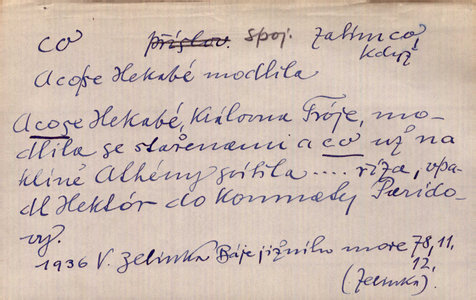 co příslov. spoj. zatímco,
když
A co se Hekabé modlila
A co se Hekabé, královna Tróje, mo-
dlila se stařenami a co už na
klíně Athény svítila .... říza, vpa-
dl Hektór do komnaty Parido-
vy.
1936 V. Zelinka Báje jižního moře 78, 11.
12.
(Zelinka).